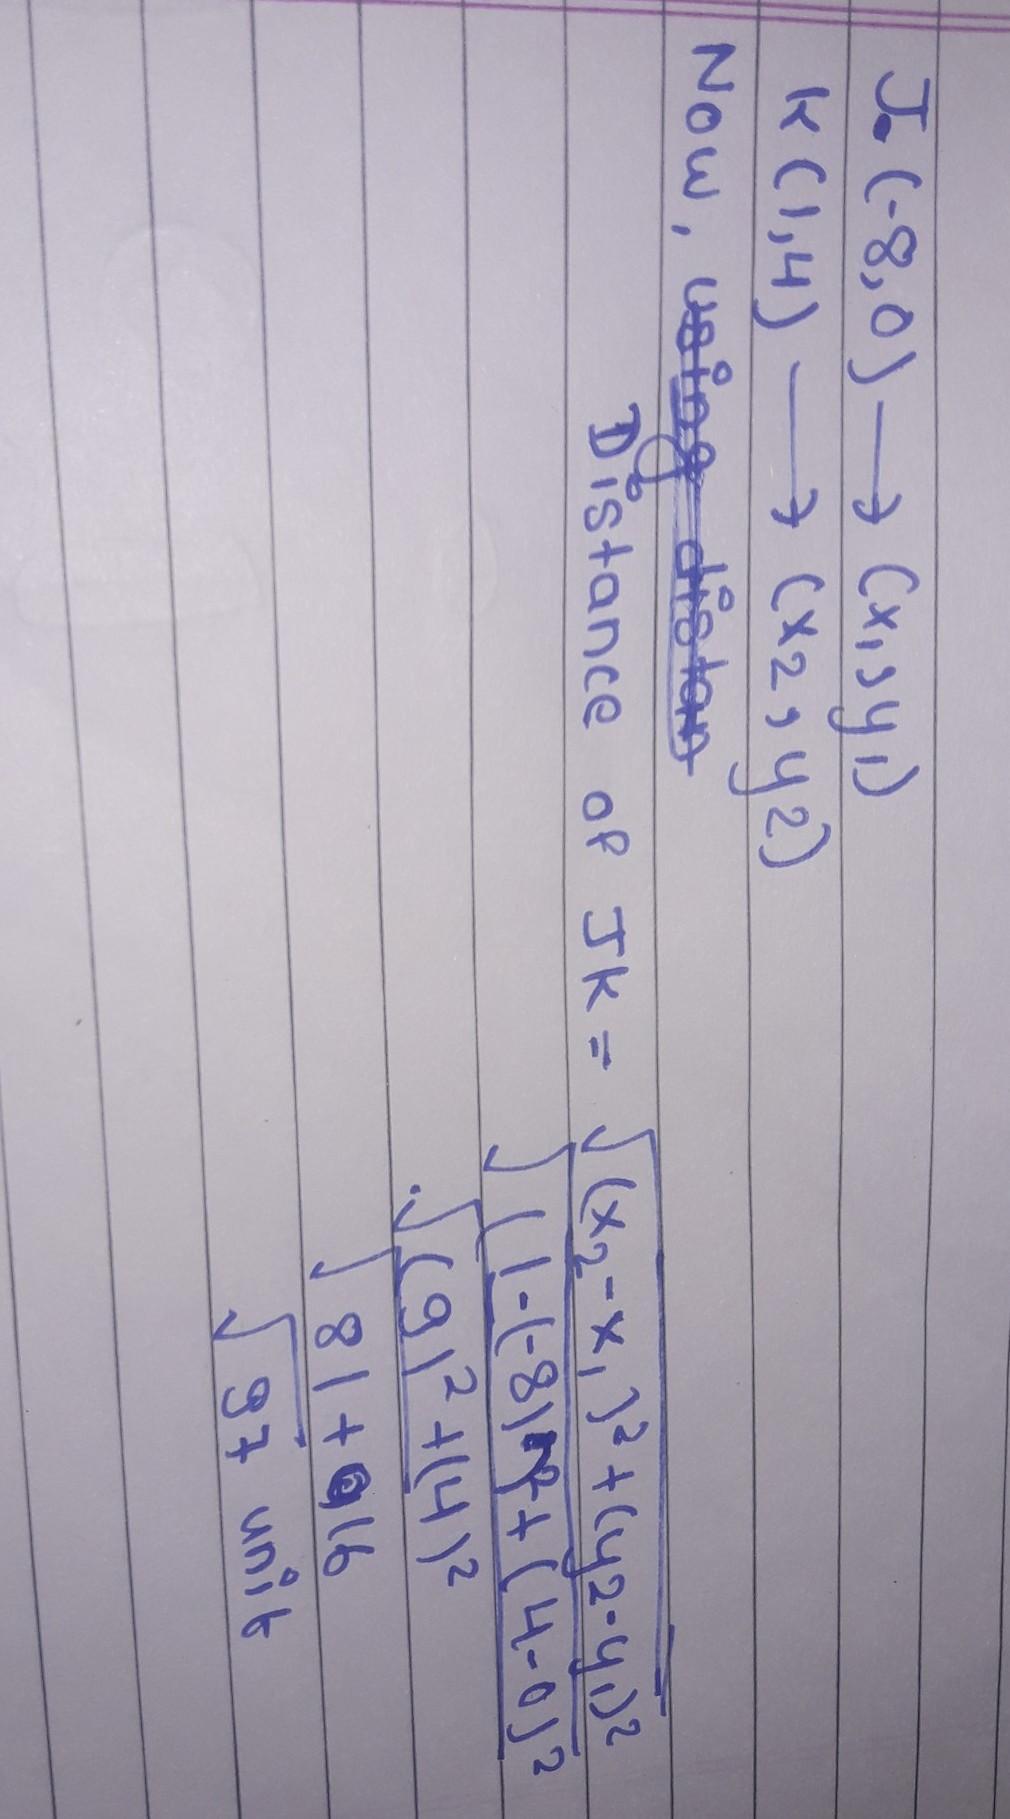 J. (-8,0) → (x1, y1)
K (1,4) → (x2, y2)
Now, using distan
Distance of JK = √(x2-x1)² + (y2-y1)²
√(1-(-8))² + (4-0)²
√(9)² + (4)²
√81 + 16
√97 unit